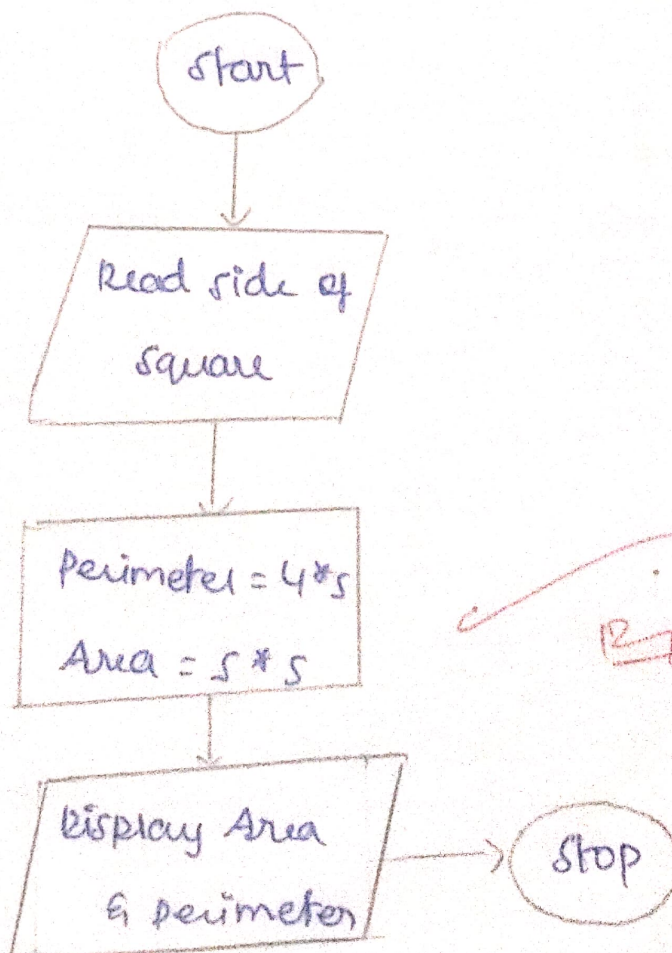 Start
Read side of
square
Perimeter = 4*s
Area = s*s
Display Area
& perimeter
Stop